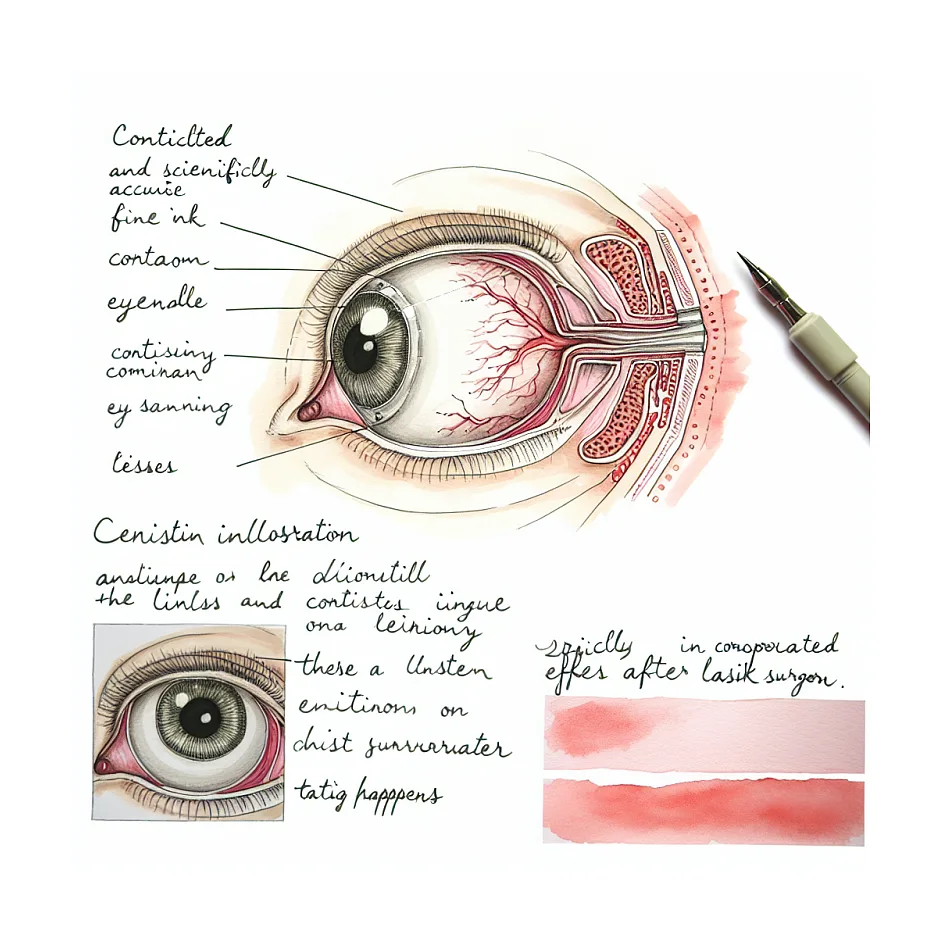 Conticlted
and scienificlly
accuvie
fine ink
contaom
eyenalle
contisiny
cominan
ey sanning
lesses
Cenistin inllostation
anstiunpe or lne diionitill
the linlss and contistes iingue
ona leiniony
these a Unsten
emitinom on
chist sunvaruater
tatig happpens
in coropocated
effes after lasik surgon.